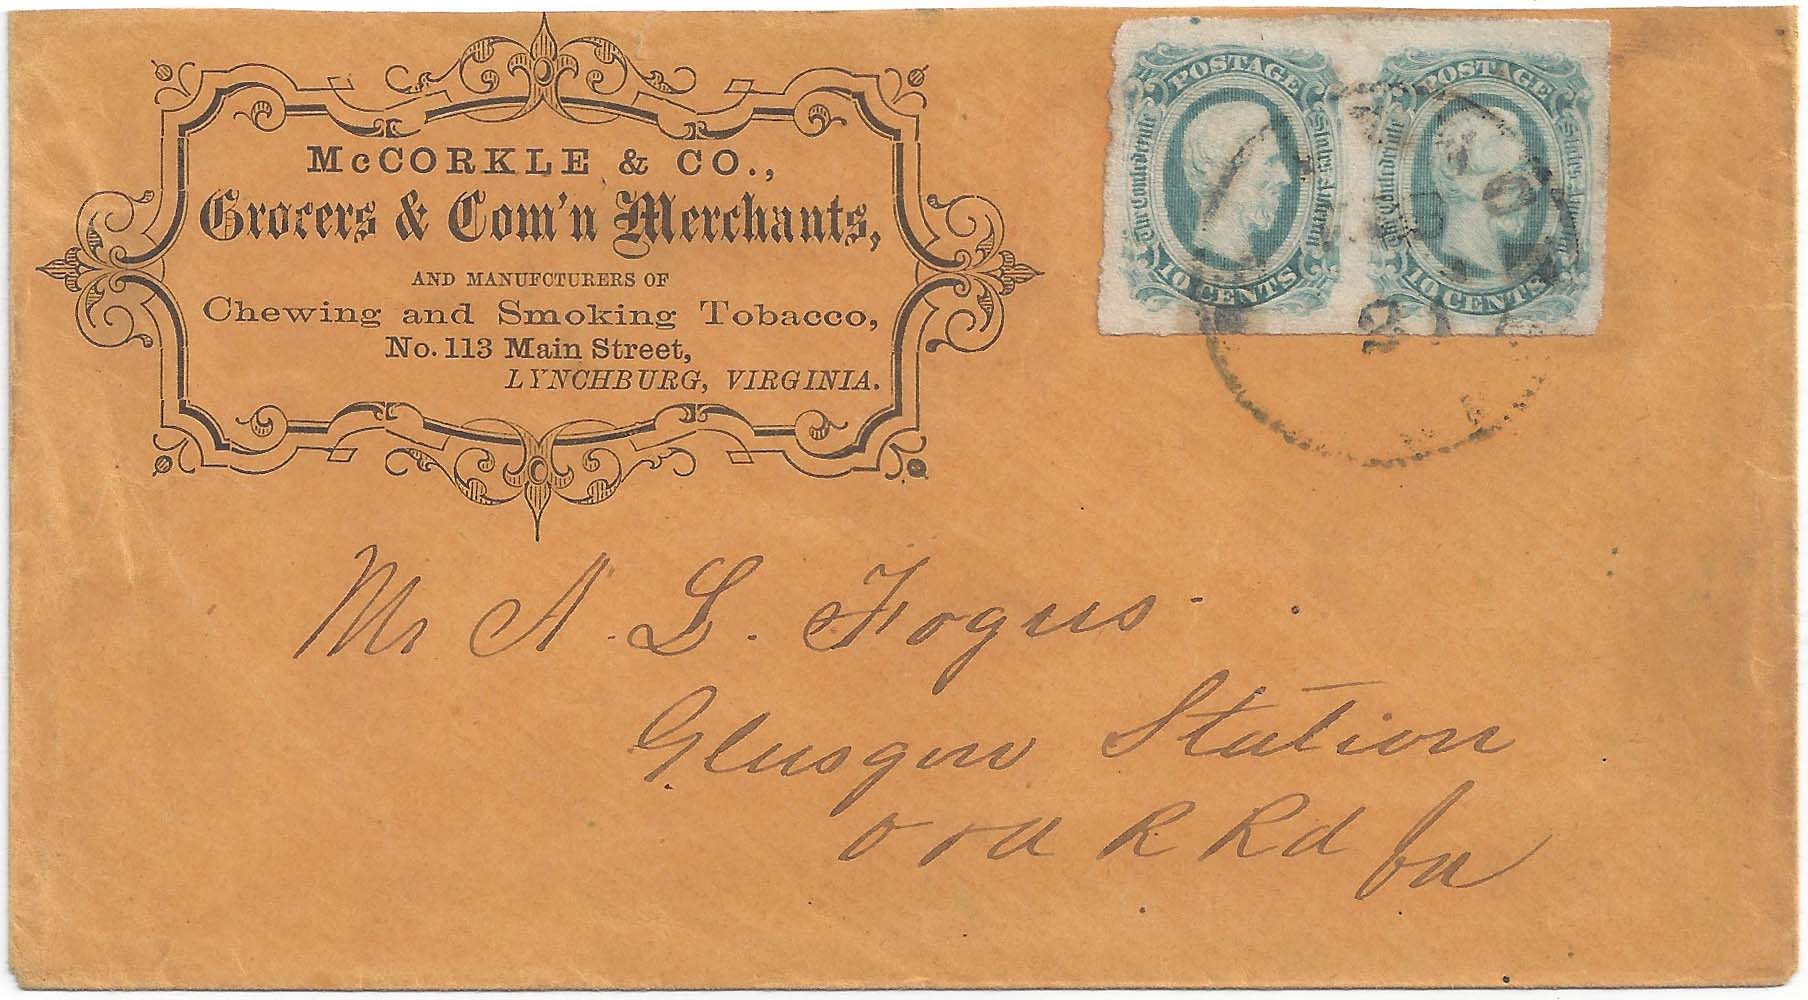 McCORKLE & CO.,
Grocers & Com'n Merchants,
AND MANUFCTURERS OF
Chewing and Smoking Tobacco,
No. 113 Main Street,
LYNCHBURG, VIRGINIA.
POSTAGE
The Confederate States of America
10 CENTS
POSTAGE
The Confederate States of America
10 CENTS
Mr A. L. Fogus.
Glasgow Station
O & A R Rd Va